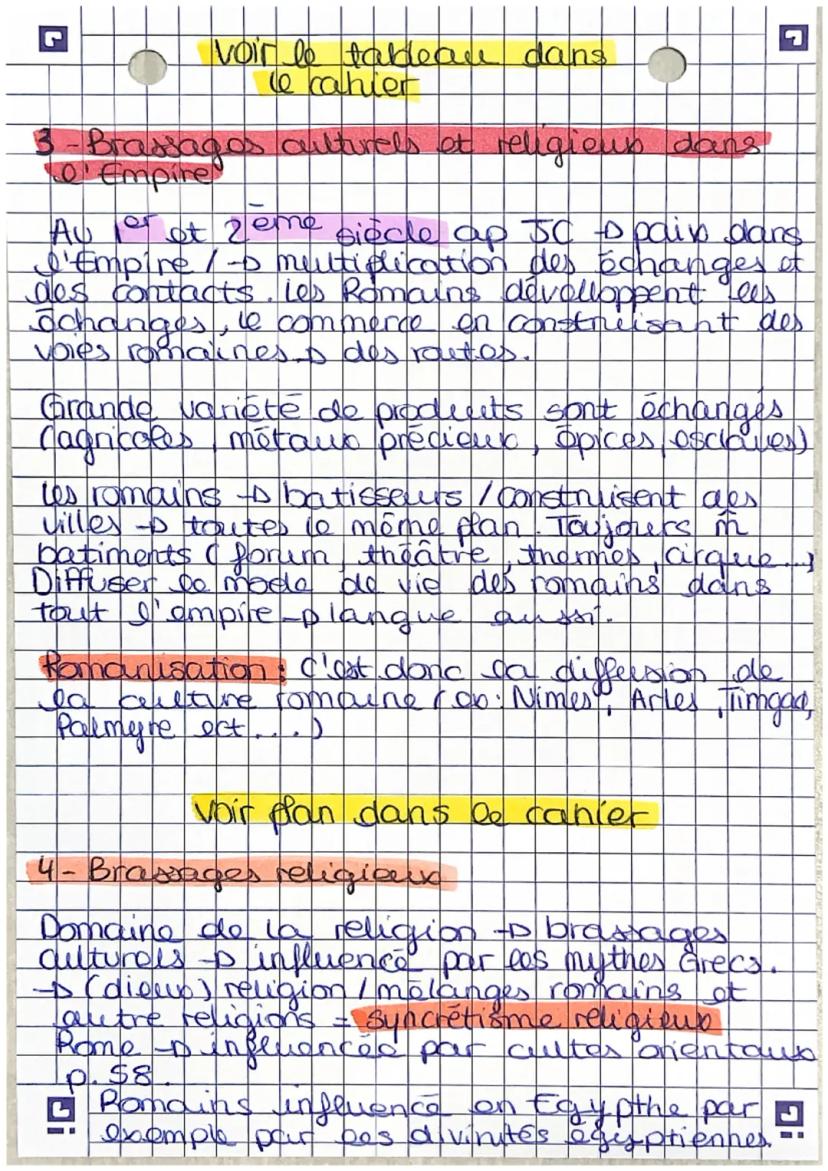 voir le tableau dans
le cahier
3 - Brassages culturels et religieux dans
l'Empire
Au 1er et 2ème siècle ap JC → paix dans
l'Empire / → multiplication des échanges et
des contacts. Les Romains développent les
échanges, le commerce en construisant des
voies romaines → des routes.
Grande variété de produits sont échangés
(agricoles, métaux précieux, épices, esclaves)
Les romains → batisseurs / construisent des
villes → toutes le même plan. Toujours m̂
batiments (forum, théâtre, thermes, cirque...)
Diffuser le mode de vie des romains dans
tout l'empire → langue aussi.
Romanisation : C'est donc la diffusion de
la culture romaine (ex : Nîmes, Arles, Timgad,
Palmyre ect...)
voir plan dans le cahier
4 - Brassages religieux
Domaine de la religion → brassages
culturels → influencé par les mythes Grecs.
→ (dieux) religion / mélanges romains et
autre religions = syncrétisme religieux
Rome → influencée par cultes orientaux
p.58.
Romains influencé en Egypthe par
exemple par les divinités égyptiennes.